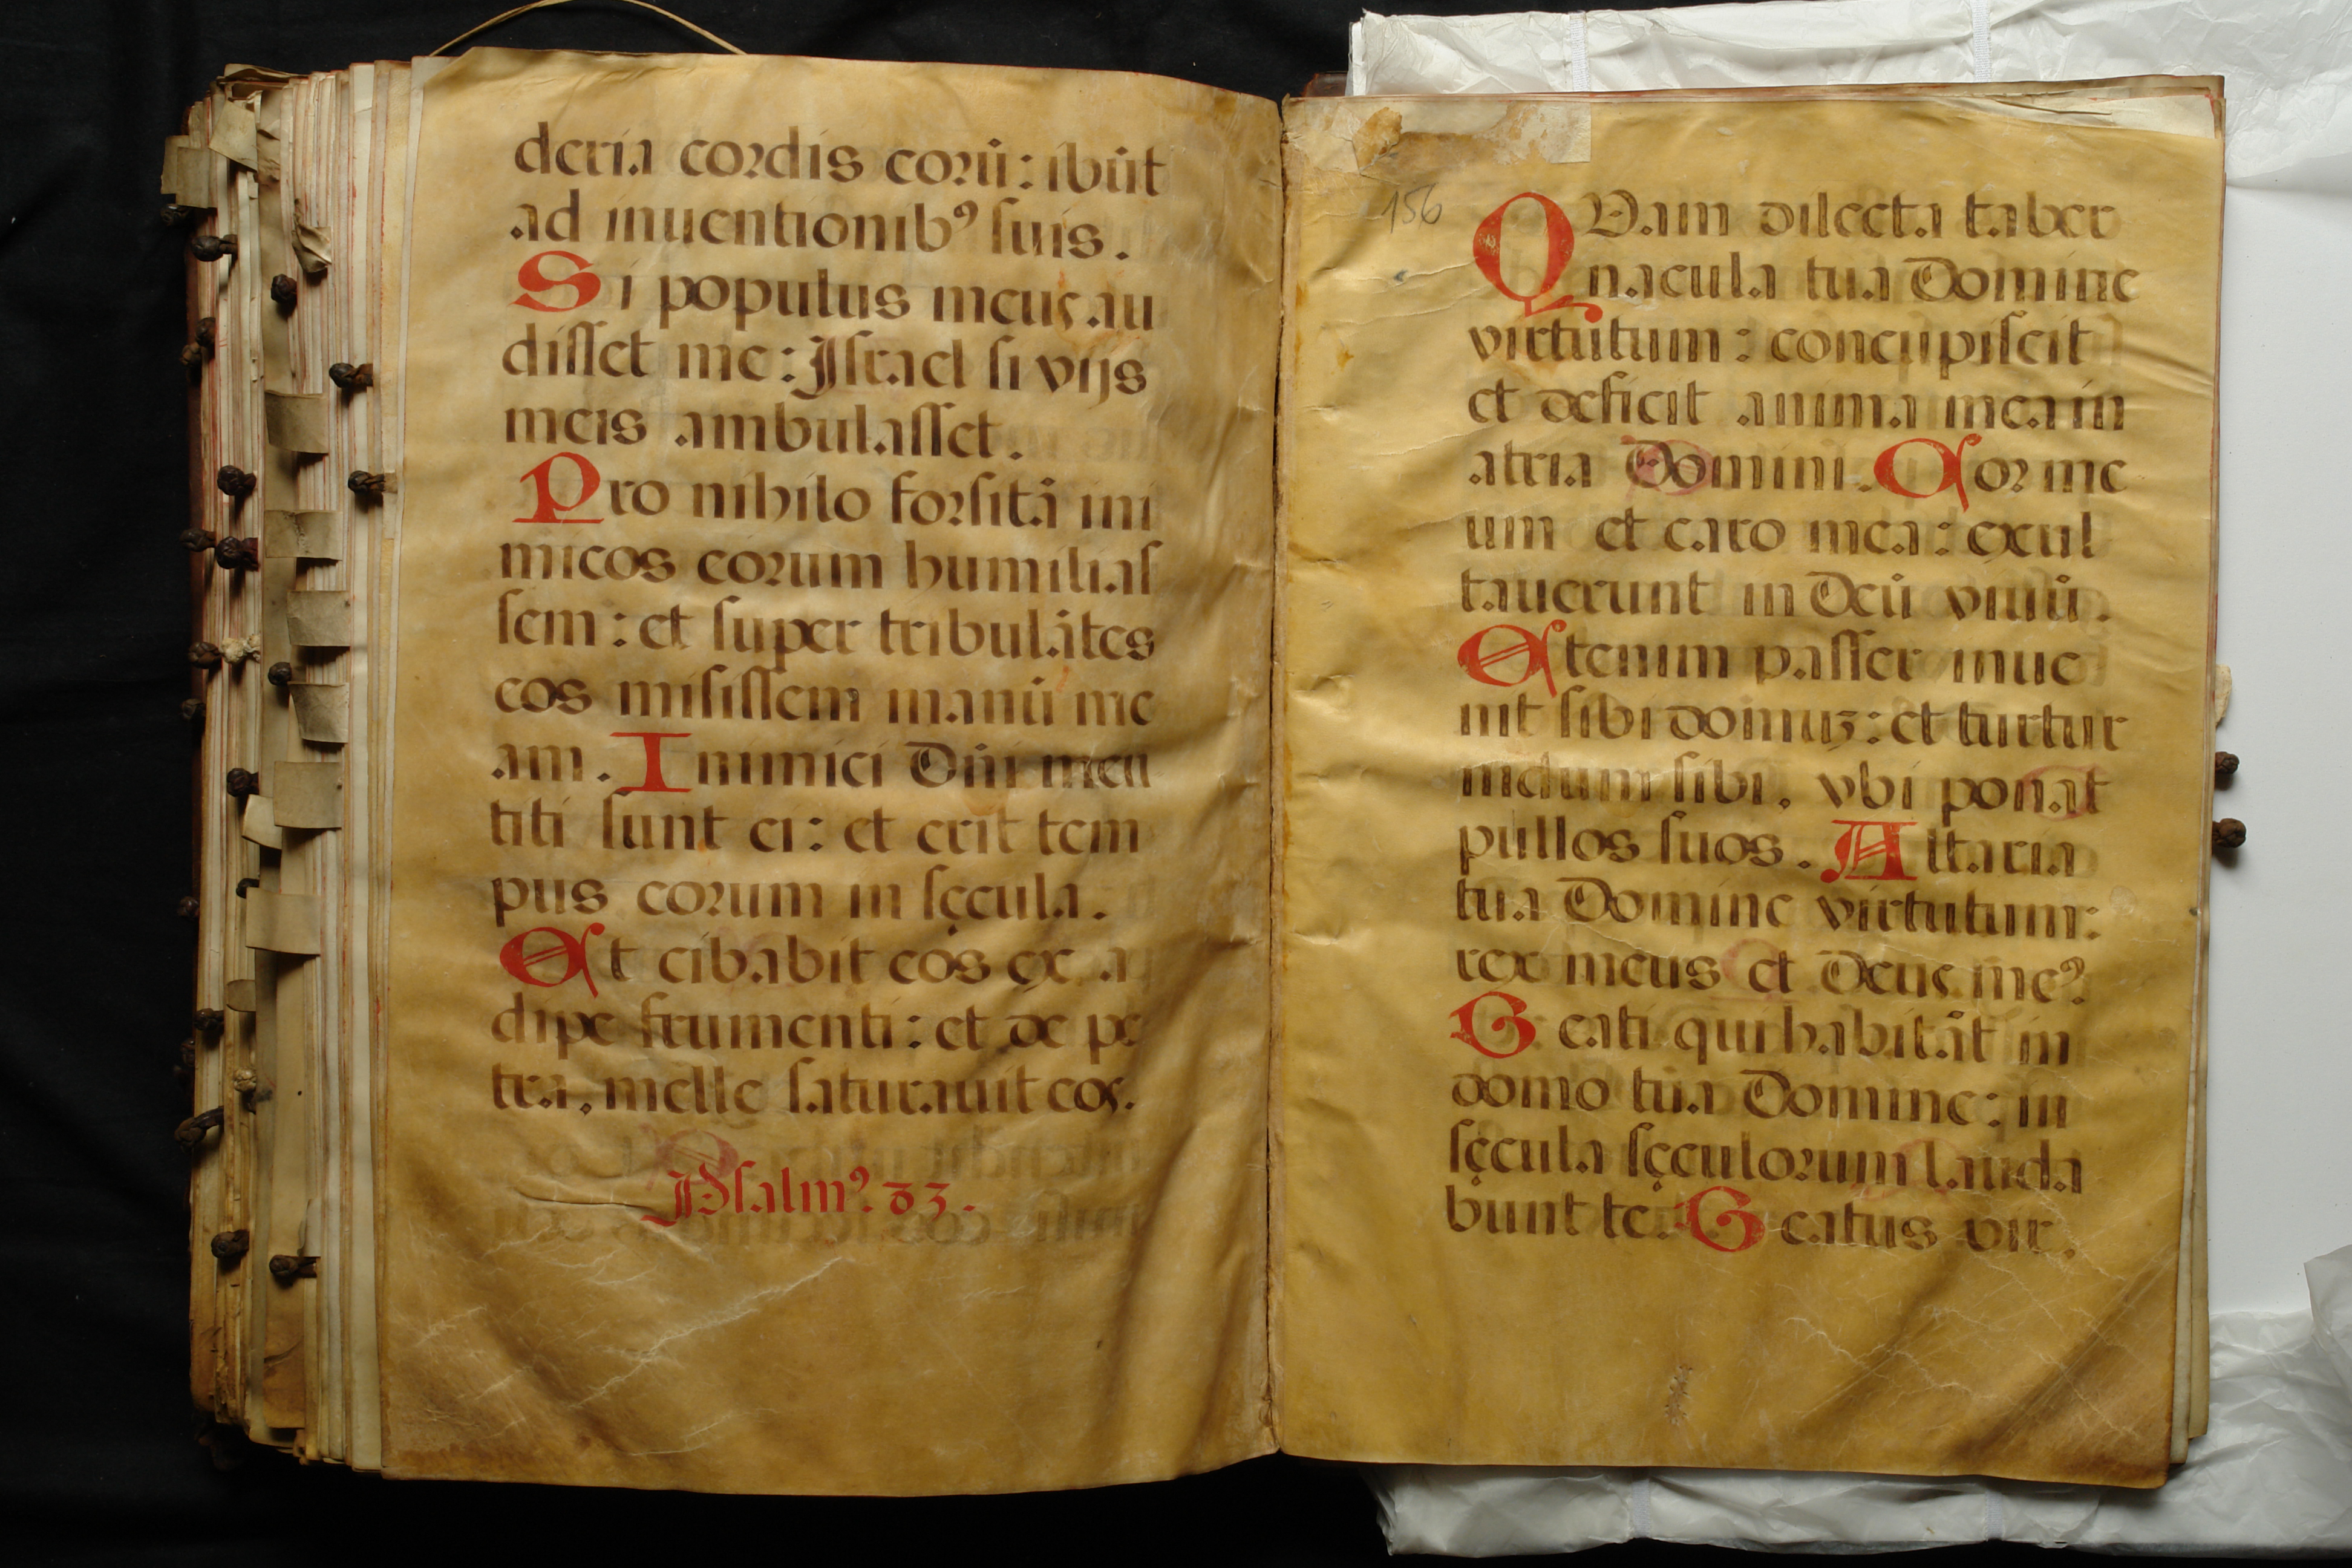 deria cordis eorū: ibūt
ad inuentionibꝰ ſuis.
Si populus meus au
diſſet me: Iſrael ſi vijs
meis ambulaſſet.
Pro nihilo forſitā ini
micos eorum humiliaſ
ſem: et ſuper tribulātes
eos miſiſſem manū me
am. Inimici Dn̄i men
titi ſunt ei: et erit tem
pus eorum in ſęcula.
Et cibabit eos ex a
dipe frumenti: et de pe
tra, melle ſaturauit eos.
Pſalmꝰ. 83.
156
QVam dilecta taber
nacula tua Domine
virtutum: concupiſcit
et deficit anima mea in
atria Domini. Cor me
um et caro mea: exul
tauerunt in Deū viuū.
Etenim paſſer inue
nit ſibi domuꝫ: et turtur
nidum ſibi, vbi ponat
pullos ſuos. Altaria
tua Domine virtutum:
rex meus et Deus meꝰ.
Beati qui habitāt in
domo tua Domine: in
ſęcula ſęculorum lauda
bunt te. Beatus vir,